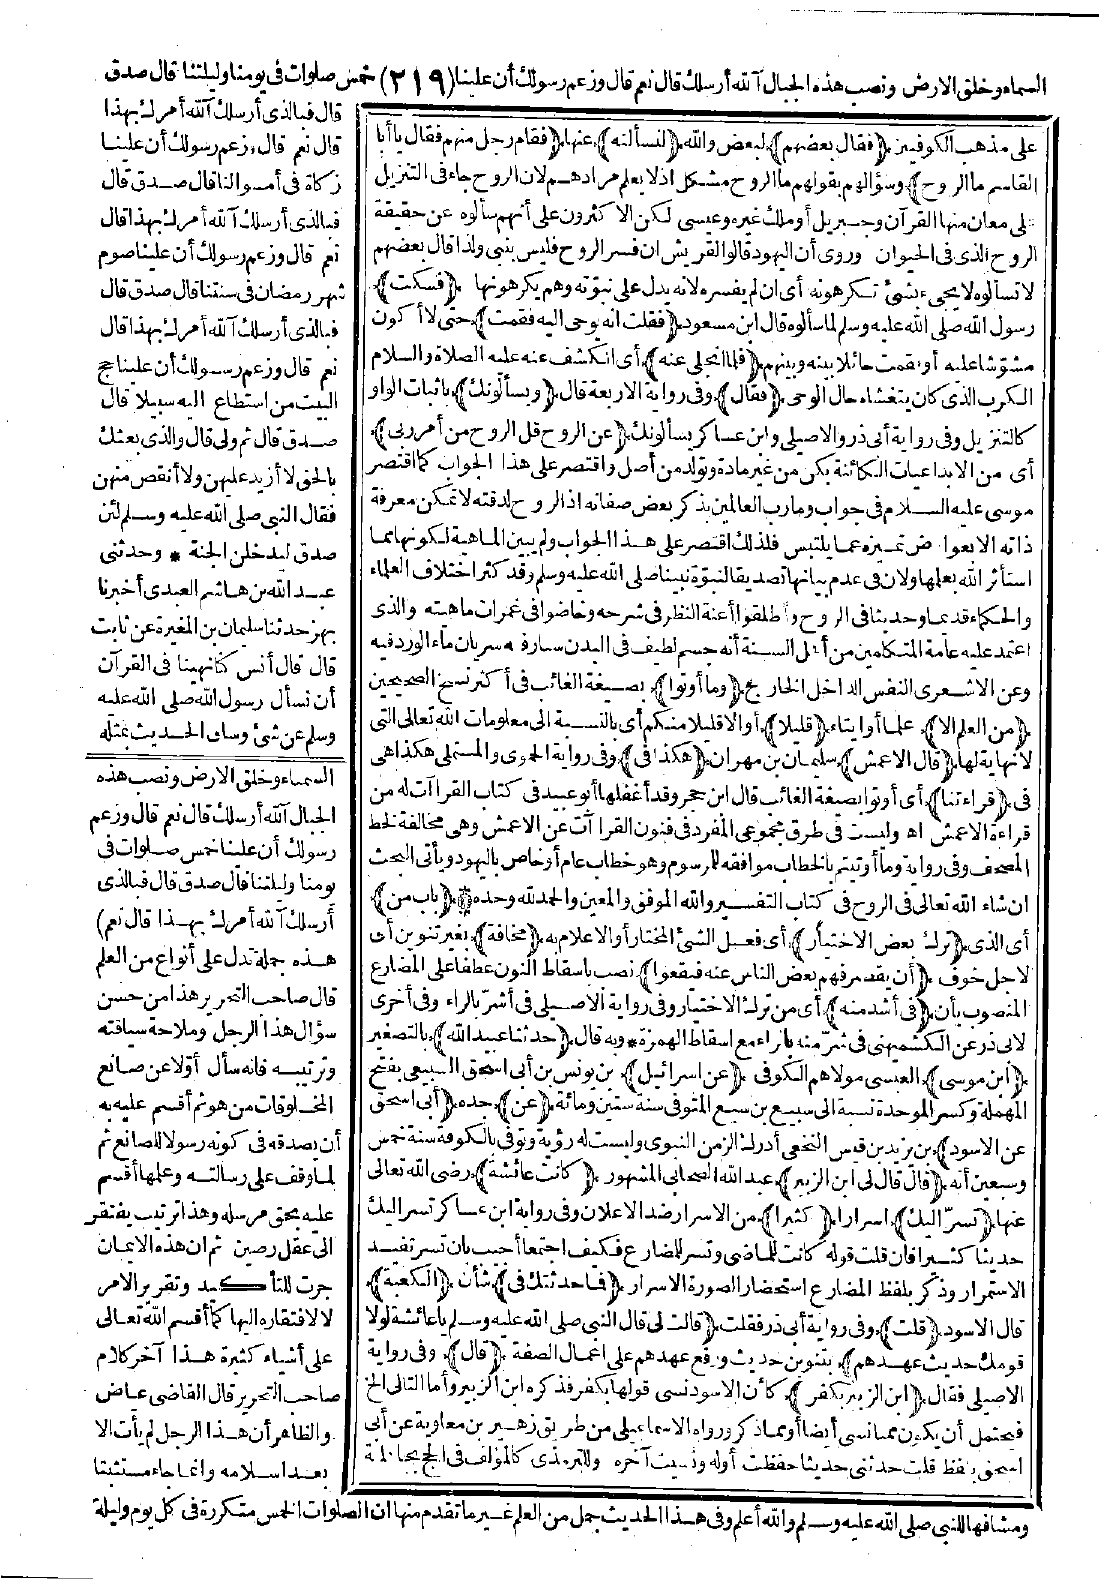 السماء وخلق الارض ونصب هذه الجبال آلله أرسلك قال نعم قال وزعم رسولك أن علينا (٢١٩) خمس صلوات فى يومنا وليلتنا قال صدق
على مذهب الكوفيين (فقال بعضهم) لبعض والله (لنسألنه) عنها (فقام رجل منهم فقال يا أبا
القاسم ما الروح) وسؤالهم بقولهم ما الروح مشكل اذ لا يعلم مرادهم لان الروح جاء فى التنزيل
على معان منها القرآن وجبريل أو ملك غيره وعيسى لكن الاكثرون على أنهم سألوه عن حقيقة
الروح الذى فى الحيوان وروى أن اليهود قالوا لقريش ان فسر الروح فليس بنبى ولذا قال بعضهم
لا تسألوه لا يجىء بشئ تكرهونه أى ان لم يفسره لانه يدل على نبوته وهم يكرهونها (فسكت)
رسول الله صلى الله عليه وسلم لما سألوه قال ابن مسعود (فقلت انه يوحى اليه فقمت) حتى لا أكون
مشوشا عليه أو فقمت حائلا بينه وبينهم (فلما انجلى عنه) أى انكشف عنه عليه الصلاة والسلام
الكرب الذى كان يتغشاه حال الوحى (فقال) وفى رواية الاربعة قال (ويسألونك) باثبات الواو
كالتنزيل وفى رواية أبى ذر والاصيلى وابن عساكر يسألونك (عن الروح قل الروح من أمر ربى)
أى من الابداعيات الكائنة بكن من غير مادة وتولد من أصل واقتصر على هذا الجواب كما اقتصر
موسى عليه السلام فى جواب وما رب العالمين بذكر بعض صفاته اذ الروح لدقته لا تمكن معرفة
ذاته الا بعوارض تميزه عما يلتبس فلذلك اقتصر على هذا الجواب ولم يبين الماهية لكونها مما
استأثر الله بعلمها ولان فى عدم بيانها تصديقا لنبوة نبينا صلى الله عليه وسلم وقد كثر اختلاف العلماء
والحكماء قديما وحديثا فى الروح وأطلقوا أعنة النظر فى شرحه وخاضوا فى غمرات ماهيته والذى
اعتمد عليه عامة المتكلمين من أهل السنة أنه جسم لطيف فى البدن سار فيه سريان ماء الورد فيه
وعن الاشعرى النفس الداخل الخارج (وما أوتوا) بصيغة الغائب فى أكثر نسخ الصحيحين
(من العلم الا) علما أو ايتاء (قليلا) أو الا قليلا منكم أى بالنسبة الى معلومات الله تعالى التى
لا نهاية لها (قال الاعمش) سليمان بن مهران (هكذا فى) وفى رواية الحموى والمستملى هكذا هى
فى (قراءتنا) أى أوتوا بصيغة الغائب قال ابن حجر وقد أغفلها أبو عبيد فى كتاب القراآت له من
قراءة الاعمش اه وليست فى طرق مجموعى المفرد فى فنون القراآت عن الاعمش وهى مخالفة لخط
المصحف وفى رواية وما أوتيتم بالخطاب موافقه للمرسوم وهو خطاب عام أو خاص باليهود ويأتى البحث
ان شاء الله تعالى فى الروح فى كتاب التفسير والله الموفق والمعين والحمد لله وحده * (باب من)
أى الذى (ترك بعض الاختيار) أى فعل الشئ المختار أو الاعلام به (مخافة) بغير تنوين أى
لاجل خوف (أن يقصر فهم بعض الناس عنه فيقعوا) نصب باسقاط النون عطفا على المضارع
المنصوب بأن (فى أشد منه) أى من ترك الاختيار وفى رواية الاصيلى فى أشر بالراء وفى أخرى
لابى ذر عن الكشميهنى فى شر منه بالراء مع اسقاط الهمزة * وبه قال (حدثنا عبيد الله) بالتصغير
(ابن موسى) العبسى مولاهم الكوفى (عن اسرائيل) بن يونس بن أبى اسحق السبيعى بفتح
المهملة وكسر الموحدة نسبة الى سبيع بن سبع المتوفى سنة ستين ومائة (عن) جده (أبى اسحق
عن الاسود) بن يزيد بن قيس النخعى أدرك الزمن النبوى وليست له رؤية وتوفى بالكوفة سنة خمس
وسبعين أنه (قال قال لى ابن الزبير) عبد الله الصحابى المشهور (كانت عائشة) رضى الله تعالى
عنها (تسر اليك) اسرارا (كثيرا) من الاسرار ضد الاعلان وفى رواية ابن عساكر تسر اليك
حديثا كثيرا فان قلت قوله كانت للماضى وتسر للمضارع فكيف اجتمعا أجيب بان تسر تفيد
الاستمرار وذكر بلفظ المضارع استحضارا لصورة الاسرار (فما حدثتك فى) شأن (الكعبة)
قال الاسود (قلت) وفى رواية أبى ذر فقلت (قالت لى قال النبى صلى الله عليه وسلم يا عائشة لولا
قومك حديث عهدهم) بتنوين حديث ورفع عهدهم على اعمال الصفة (قال) وفى رواية
الاصيلى فقال (ابن الزبير بكفر) كأن الاسود نسى قولها بكفر فذكره ابن الزبير وأما التالى الخ
فيحتمل أن يكون مما نسى أيضا أو مما ذكر ورواه الاسماعيلى من طريق زهير بن معاوية عن أبى
اسحق بلفظ قلت حدثتنى حديثا حفظت أوله ونسيت آخره وللترمذى كالمؤلف فى الحج بجاهلية
قال فبالذى أرسلك آلله أمرك بهذا
قال نعم قال وزعم رسولك أن علينا
زكاة فى أموالنا قال صدق قال
فبالذى أرسلك آلله أمرك بهذا قال
نعم قال وزعم رسولك أن علينا صوم
شهر رمضان فى سنتنا قال صدق قال
فبالذى أرسلك آلله أمرك بهذا قال
نعم قال وزعم رسولك أن علينا حج
البيت من استطاع اليه سبيلا قال
صدق قال ثم ولى قال والذى بعثك
بالحق لا أزيد عليهن ولا أنقص منهن
فقال النبى صلى الله عليه وسلم لئن
صدق ليدخلن الجنة * وحدثنى
عبد الله بن هاشم العبدى أخبرنا
بهز حدثنا سليمان بن المغيرة عن ثابت
قال قال أنس كنا نهينا فى القرآن
أن نسأل رسول الله صلى الله عليه
وسلم عن شئ وساق الحديث بمثله
السماء وخلق الارض ونصب هذه
الجبال آلله أرسلك قال نعم قال وزعم
رسولك أن علينا خمس صلوات فى
يومنا وليلتنا قال صدق قال فبالذى
أرسلك آلله أمرك بهذا قال نعم)
هذه جملة تدل على أنواع من العلم
قال صاحب التحرير هذا من حسن
سؤال هذا الرجل وملاحة سياقته
وترتيبه فانه سأل أولا عن صانع
المخلوقات من هو ثم أقسم عليه به
أن يصدقه فى كونه رسولا للصانع ثم
لما وقف على رسالته وعلمها أقسم
عليه بحق مرسله وهذا ترتيب يفتقر
الى عقل رصين ثم ان هذه الايمان
جرت للتأكيد وتقرير الامر
لا لافتقاره اليها كما أقسم الله تعالى
على أشياء كثيرة هذا آخر كلام
صاحب التحرير قال القاضى عياض
والظاهر أن هذا الرجل لم يأت الا
بعد اسلامه وانما جاء مستثبتا
ومشافها للنبى صلى الله عليه وسلم والله أعلم وفى هذا الحديث جمل من العلم غير ما تقدم منها ان الصلوات الخمس متكررة فى كل يوم وليلة